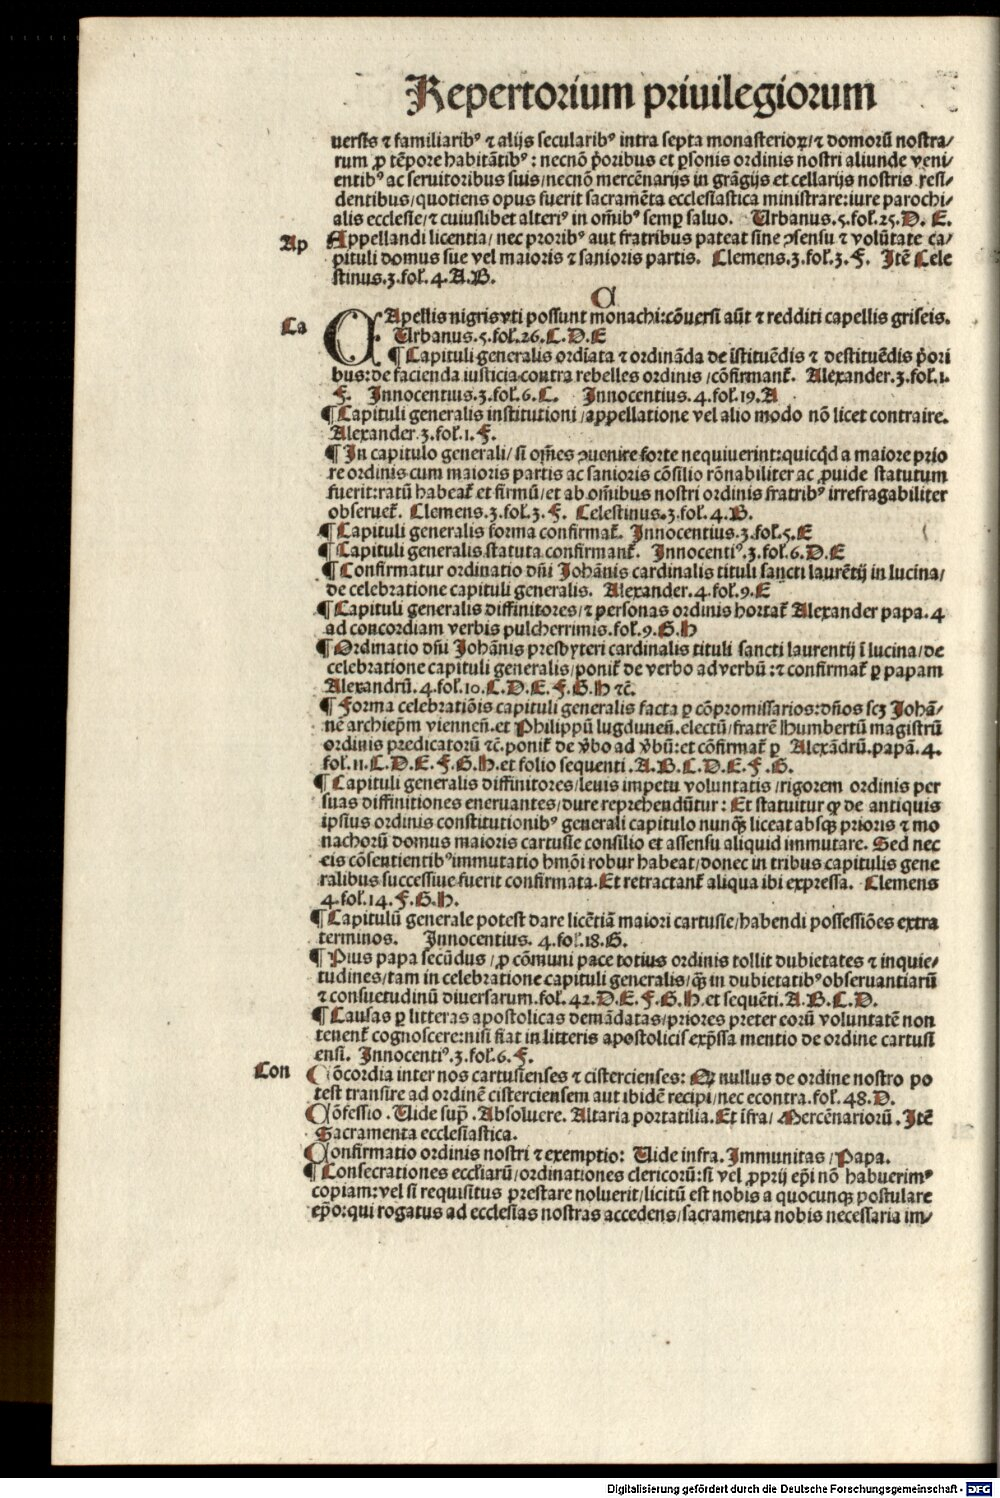 Repertorium priuilegiorum
uersis ⁊ familiaribꝰ ⁊ alijs secularibꝰ intra septa monasterioꝝ/⁊ domorū nostra/
rum ꝓ tēpore habitātibꝰ: necnō p̄oribus et ꝑsonis ordinis nostri aliunde veni/
entibꝰ ac seruitoribus suis/necnō mercēnarijs in grāgijs et cellarijs nostris resi/
dentibus/quotiens opus fuerit sacramēta ecclesiastica ministrare:iure parochi/
alis ecclesie/⁊ cuiuslibet alteriꝰ in oīm̄ibꝰ semꝑ saluo. Urbanus.5.fol.25.D. E.
Ap
Appellandi licentia/ nec prioribꝰ aut fratribus pateat sine ꝯsensu ⁊ volūtate ca/
pituli domus sue vel maioris ⁊ sanioris partis. Clemens.3.fol.3.F. Itē Cele
stinus.3.fol.4.A.B.
C
Ca
CApellis nigris vti possunt monachi:cōuersi aūt ⁊ redditi capellis griseis.
Urbanus.5.fol.26.C.D.E
¶ Capituli generalis ordīata ⁊ ordināda de īstituēdis ⁊ destituēdis p̄ori
bus:de facienda iusticia contra rebelles ordinis/cōfirmant̄. Alexander.3.fol.1.
F. Innocentius.3.fol.6.C. Innocentius.4.fol.19.A
¶ Capituli generalis institutioni/appellatione vel alio modo nō licet contraire.
Alexander.3.fol.1.F.
¶ In capitulo generali/ si om̄es ꝯuenire forte nequiuerint:quicq̄d a maiore prio
re ordinis cum maioris partis ac sanioris cōsilio rōnabiliter ac ꝓuide statutum
fuerit:ratū habeat̄ et firmū/et ab om̄ibus nostri ordinis fratribꝰ irrefragabiliter
obseruet̄. Clemens.3.fol.3.F. Celestinus.3.fol.4.B.
¶ Capituli generalis forma confirmat̄. Innocentius.3.fol.5.E
¶ Capituli generalis statuta confirmant̄. Innocentiꝰ.3.fol.6.D.E
¶ Confirmatur ordinatio dn̄i Johānis cardinalis tituli sancti laurētij in lucina/
de celebratione capituli generalis. Alexander.4.fol.9.E
¶ Capituli generalis diffinitores/⁊ personas ordinis hortat̄ Alexander papa.4
ad concordiam verbis pulcherrimis.fol.9.G.H
¶ Ordinatio dn̄i Johānis presbyteri cardinalis tituli sancti laurentij ī lucina/de
celebratione capituli generalis/ponit̄ de verbo ad verbū:⁊ confirmat̄ ꝑ papam
Alexandrū.4.fol.10.C.D.E.F.G.H ⁊c̄.
¶ Forma celebratiōis capituli generalis facta ꝑ cōpromissarios:dn̄os scꝫ Johā/
nē archiep̄m viennen̄.et Philippū lugdunen̄.electū/fratrē Humbertū magistrū
ordinis predicatorū ⁊c̄.ponit̄ de v̄bo ad v̄bū:et cōfirmat̄ ꝑ Alexādrū.papā.4.
fol.11.C.D.E.F.G.H.et folio sequenti.A.B.C.D.E.F.G.
¶ Capituli generalis diffinitores/leuis impetu voluntatis/rigorem ordinis per
suas diffinitiones eneruantes/dure reprehendūtur: Et statuitur ꝙ de antiquis
ipsius ordinis constitutionibꝰ generali capitulo nunqꝫ liceat absqꝫ prioris ⁊ mo
nachorū domus maioris cartusie consilio et assensu aliquid immutare. Sed nec
eis cōsentientibꝰ immutatio hmōi robur habeat/donec in tribus capitulis gene
ralibus successiue fuerit confirmata.Et retractant̄ aliqua ibi expressa. Clemens
4.fol.14.F.G.H.
¶ Capitulū generale potest dare licētiā maiori cartusie/habendi possessiōes extra
terminos. Innocentius. 4.fol.18.G.
¶ Pius papa secūdus/ꝓ cōmuni pace totius ordinis tollit dubietates ⁊ inquie/
tudines/tam in celebratione capituli generalis/qꝫ in dubietatibꝰ obseruantiarū
⁊ consuetudinū diuersarum.fol.42.D.E.F.G.H.et sequēti.A.B.C.D.
¶ Causas ꝑ litteras apostolicas demādatas/priores preter eorū voluntatē non
tenent̄ cognoscere:nisi fiat in litteris apostolicis exp̄ssa mentio de ordine cartusi
ensi. Innocentiꝰ.3.fol.6.F.
Con
Cōcordia inter nos cartusienses ⁊ cistercienses: Qꝫ nullus de ordine nostro po
test transire ad ordinē cisterciensem aut ibidē recipi/nec econtra.fol.48.D.
Cōfessio.Uide sup̄.Absoluere. Altaria portatilia.Et īfra/Mercēnariorū.Itē
Sacramenta ecclesiastica.
Confirmatio ordinis nostri ⁊ exemptio: Uide infra.Immunitas/Papa.
¶ Consecrationes eccl̄iarū/ordinationes clericorū:si vel ꝓprij ep̄i nō habuerimꝰ
copiam:vel si requisitus prestare noluerit/licitū est nobis a quocunqꝫ postulare
ep̄o:qui rogatus ad ecclesias nostras accedens/sacramenta nobis necessaria im/
Digitalisierung gefördert durch die Deutsche Forschungsgemeinschaft - DFG